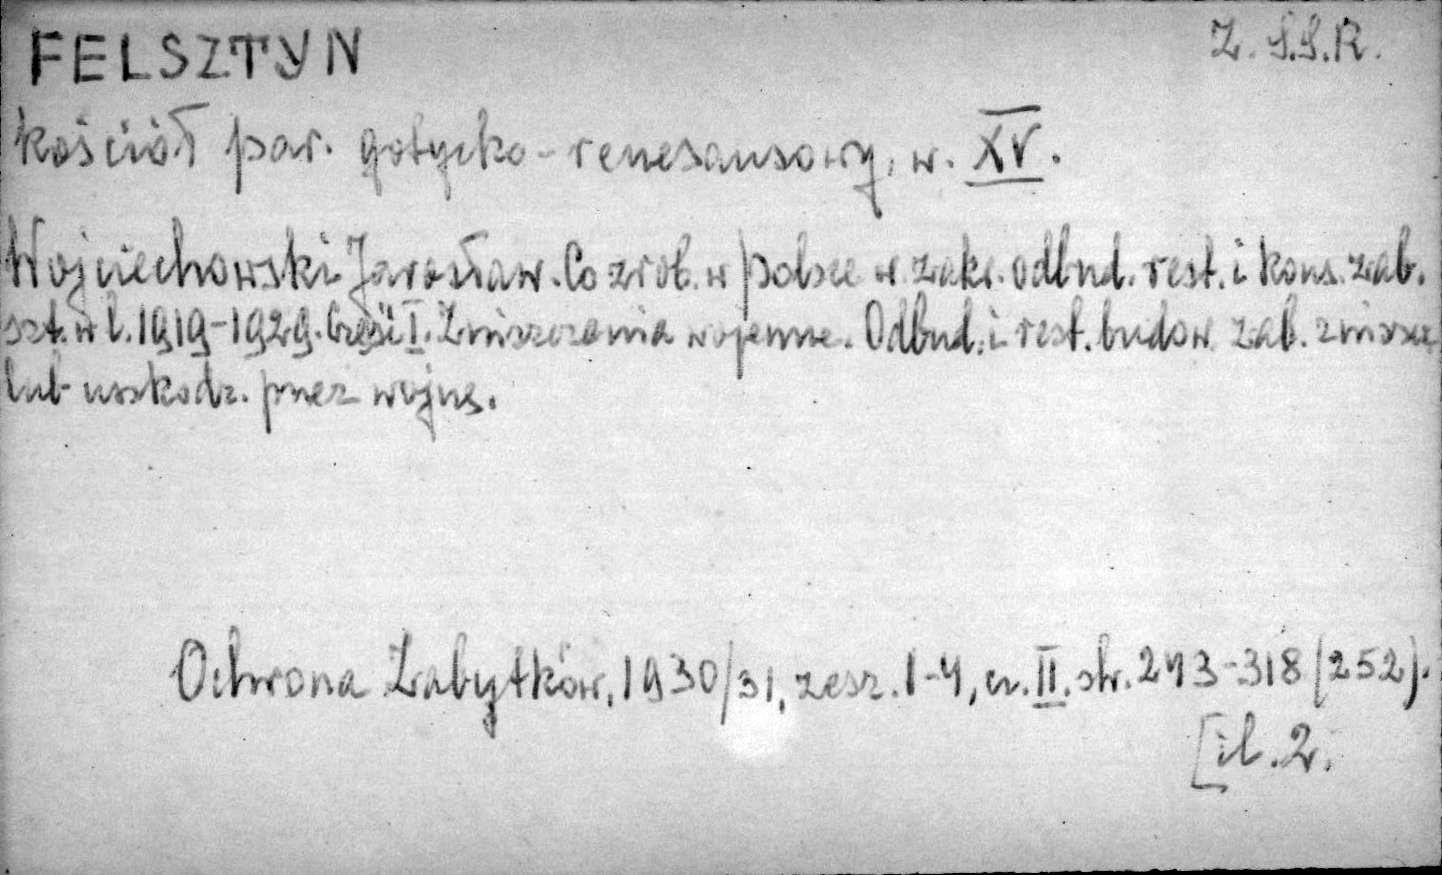 FELSZTYN Z. S.S.R.
kościół par. gotycko-renesansowy, w. XV.
Wojciechowski Jarosław. Co zrob. w Polsce w zakr. odbud. rest. i kons. zab.
szt. w l. 1919-1929. Część I. Zniszczenia wojenne. Odbud. i rest. budow. zab. zniszcz.
lub uszkodz. przez wojnę.
Ochrona Zabytków, 1930/31, zesz. 1-4, cz. II. str. 243-318 (252).
[il. 2.